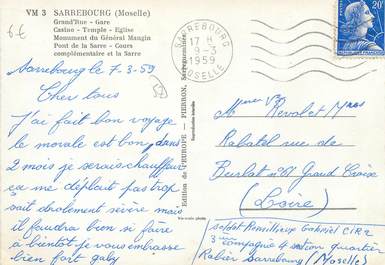 VM 3 SARREBOURG (Moselle)
Grand'Rue - Gare
Casino - Temple - Eglise
Monument du Général Mangin
Pont de la Sarre - Cours
complémentaire de la Sarre
6€
Sarrebourg le 7-3-59
Cher tous
J'ai fait bon voyage
le morale est bon, dans
2 mois je serais chauffeur
ça me déplait pas trop
sait drolement sévère mais
il faudra bien si faire
à bientôt je vous embrasse
bien fort gaby
Edition de l'EUROPE - PIERRON, Sarreguemines
Reproduction interdite
SARREBOURG
17 H
9-3
1959
MOSELLE
20F
Revolet
Rabatel rue de
Burlat n°61 Grand Croix
(Loire)
soldat Remilleux Gabriel CIR 2
3ème compagnie 4 section quartier
Rabier Sarrebourg (Moselle)